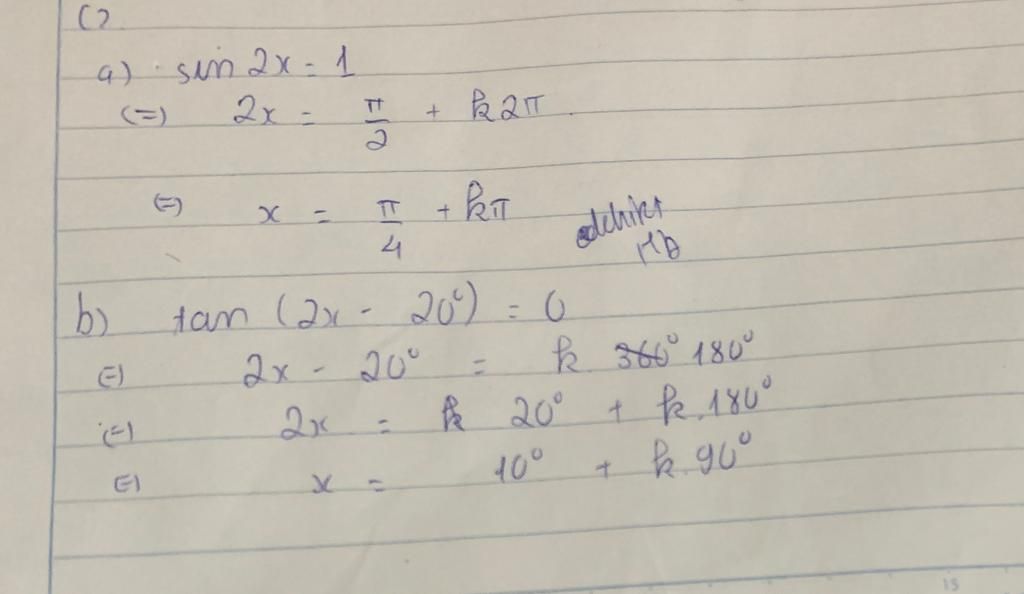 C2
a) sin 2x = 1
(=) 2x = π/2 + k2π
(=) x = π/4 + kπ
b) tan (2x - 20°) = 0
(=) 2x - 20° = k 360° 180°
(=) 2x = k 20° + k.180°
(=) x = 10° + k.90°
15